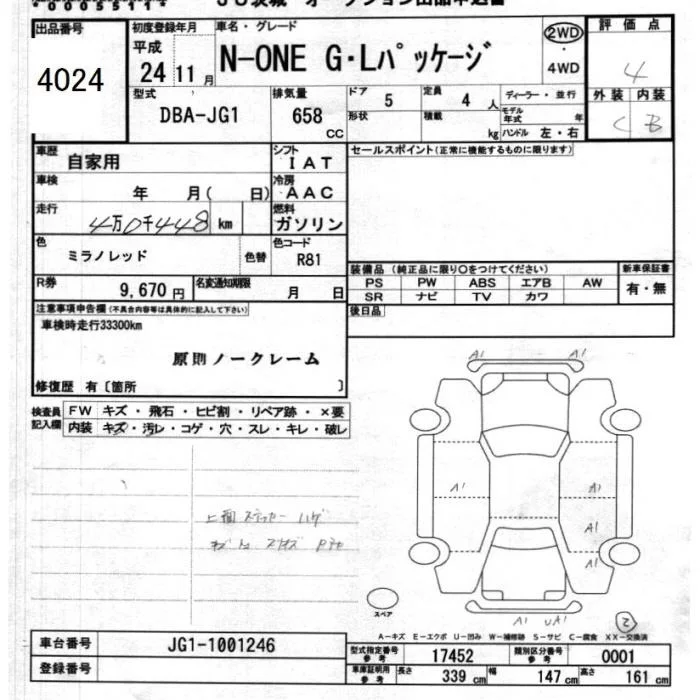 出品番号
4024
初度登録年月
平成
24 11 月
車名・グレード
N-ONE G・Lパッケージ
2WD
4WD
評価点
4
外装 内装
C B
型式
DBA-JG1
排気量
658
CC
ドア
5
定員
4 人
ディーラー・並行
形状
積載
kg
モデル年式
年
ハンドル 左・右
車歴
自家用
シフト
IAT
セールスポイント(正常に機能するものに限ります)
車検
年 月( 日)
冷房
AAC
走行
4万0千448 km
燃料
ガソリン
色
ミラノレッド
色替
色コード
R81
R券
9,670 円
名変通知期限
月 日
装備品(純正品に限り○をつけてください)
PS PW ABS エアB AW
SR ナビ TV カワ
新車保証書
有・無
後日品
注意事項申告欄(不具合内容等は具体的に記入して下さい)
車検時走行33300km
原則ノークレーム
修復歴 有〔箇所 〕
検査員記入欄
FW キズ・飛石・ヒビ割・リペア跡・×要
内装 キズ・汚レ・コゲ・穴・スレ・キレ・破レ
A1 A1
A1 A1
A1
A1
A1 UA1
スペア
2
A-キズ E-エクボ U-凹み W-補修跡 S-サビ C-腐食 XX-交換済
車台番号
JG1-1001246
登録番号
型式指定番号
参考
17452
類別区分番号
参考
0001
車庫証明用
参考
長さ
339 cm
幅
147 cm
高さ
161 cm